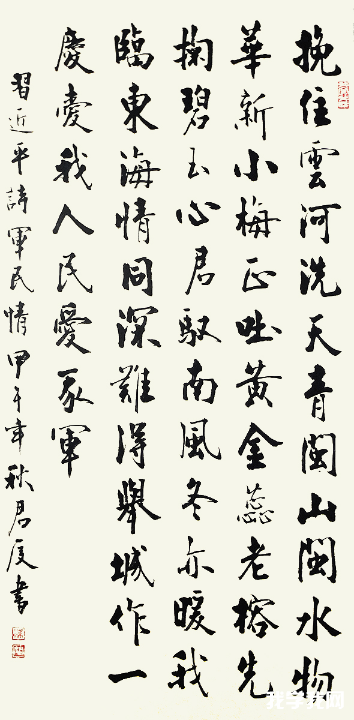 挽住雲河洗天青閩山閩水物
華新小梅正吐黃金蕊老榕先
掬碧玉心君馭南風冬亦暖我
臨東海情同深難得舉城作一
慶愛我人民愛我軍
習近平詩軍民情甲午年秋君度書